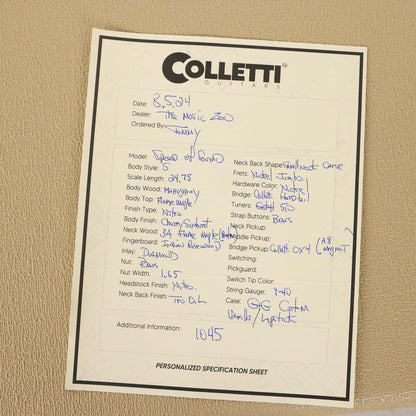 COLLETTI
GUITARS
Date: 8.5.24
Dealer: The Music Zoo
Ordered By: Tommy
Model: Speed of Sound
Body Style: S
Scale Length: 24.75
Body Wood: Mahogany
Body Top: Flame Maple
Finish Type: Nitro
Body Finish: Sunburst
Neck Wood: 3A Flame Maple
Fingerboard: Indian Rosewood
Inlay: Diamond
Nut: Bone
Nut Width: 1.65"
Headstock Finish: Nitro
Neck Back Finish: Tru Oil
Neck Back Shape: Small neck Carve
Frets: Nickel Jumbo
Hardware Color: Nickel
Bridge: Colletti Hardtail
Tuners: Gotoh 510
Strap Buttons:
Neck Pickup:
Middle Pickup:
Bridge Pickup: Colletti (A8 Magnet)
Switching:
Pickguard:
Switch Tip Color:
String Gauge: 9-40
Case: G&G Custom
Vanilla/Lipstick
Additional Information: 1045
PERSONALIZED SPECIFICATION SHEET